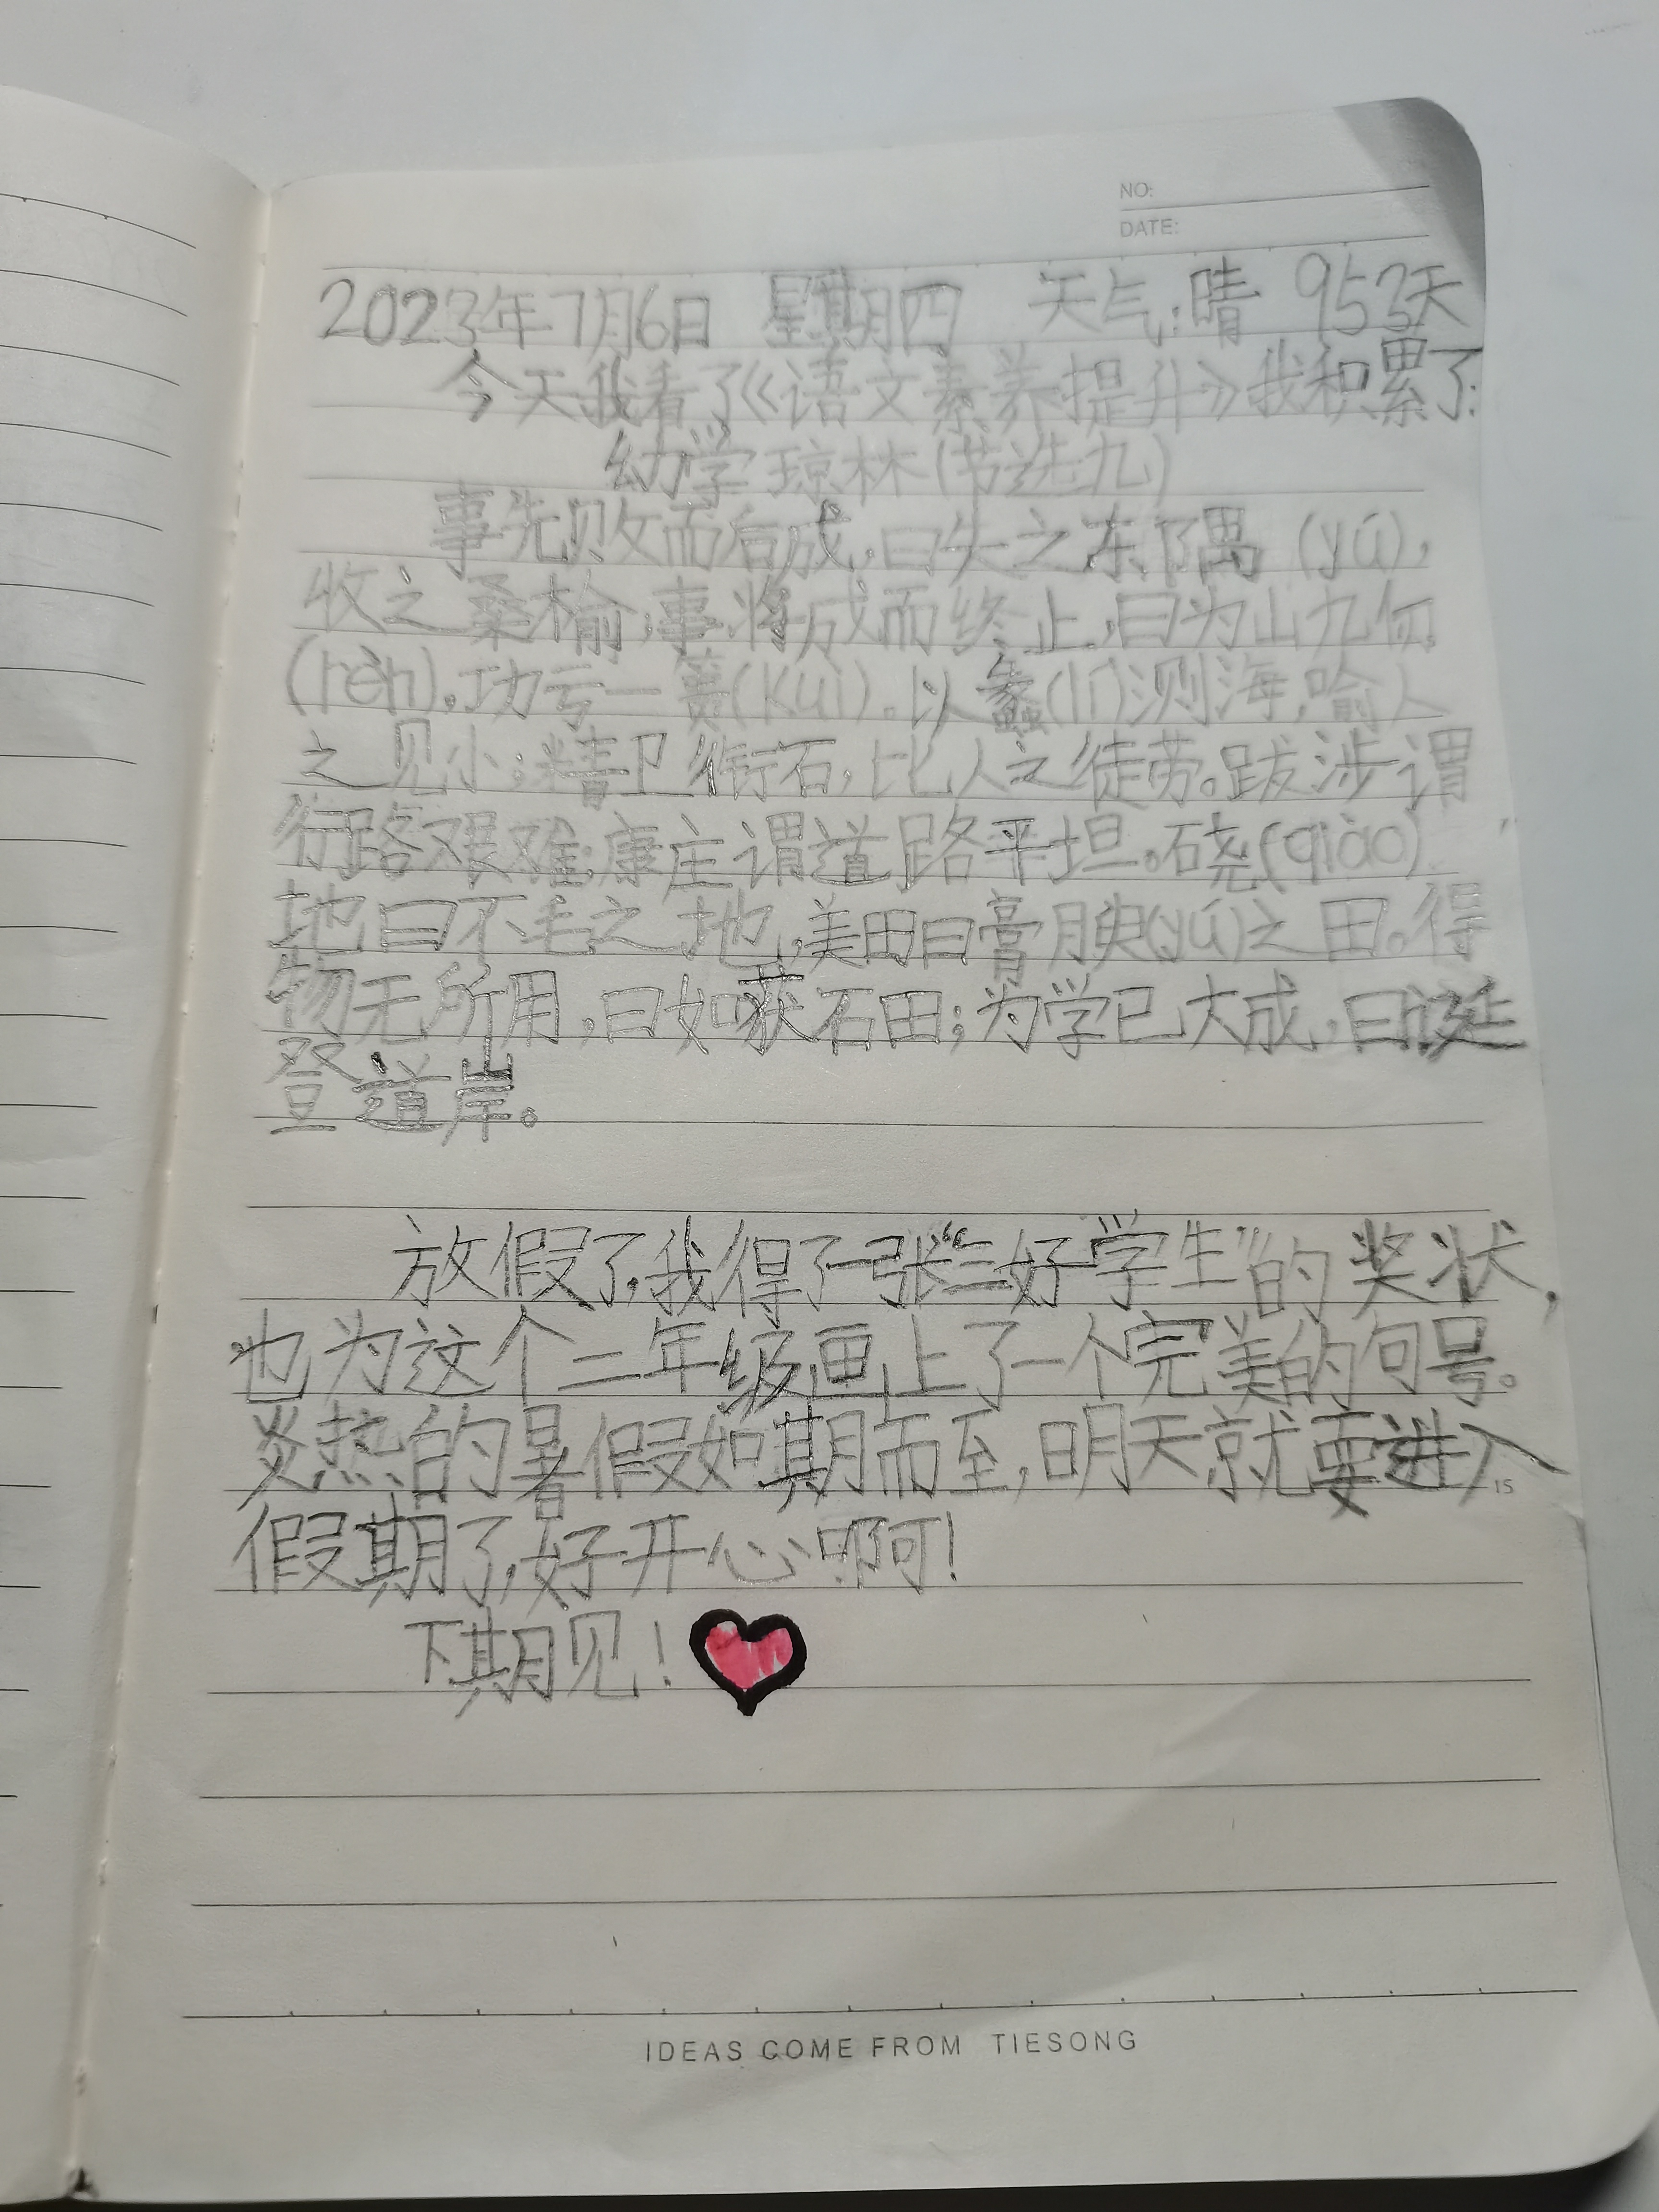 NO:
DATE:
2023年7月6日 星期四 天气:晴 953天
今天我看了《语文素养提升》我积累了:
幼学琼林(节选九)
事先败而后成,曰失之东隅(yú),
收之桑榆;事将成而终止,曰为山九仞
(rèn),功亏一篑(kuì)。以蠡(lí)测海,喻人
之见小;精卫衔石,比人之徒劳。跋涉谓
行路艰难;康庄谓道路平坦。硗(qiào)
地曰不毛之地,美田曰膏腴(yú)之田。得
物无所用,曰如获石田;为学已大成,曰诞
登道岸。
放假了,我得了一张“三好学生”的奖状,
也为这个二年级画上了一个完美的句号。
炎热的暑假如期而至,明天就要进入
15
假期了,好开心啊!
下期见!
IDEAS COME FROM TIESONG